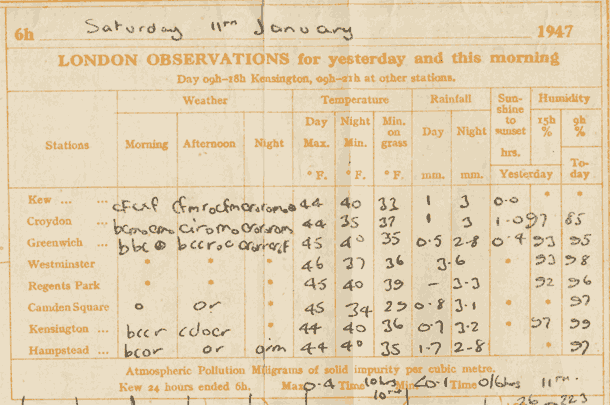 6h Saturday 11th January 1947
LONDON OBSERVATIONS for yesterday and this morning
Day 09h-18h Kensington, 09h-21h at other stations.
Stations Weather Temperature Rainfall Sunshine to sunset Humidity
Morning Afternoon Night Day Max. Night Min. Min. on grass Day Night hrs. 15h % 9h %
° F. ° F. ° F. mm. mm. Yesterday To-day
Kew ... ... 44 40 33 1 3 0.0 • •
Croydon ... 44 35 37 1 3 1.0 97 85
Greenwich ... bbc 45 40 35 0.5 2-8 0.4 93 95
Westminster • • • 46 37 36 3.6 • 93 98
Regents Park • • • 45 40 39 - 3.3 92 96
Camden Square o or • 45 34 29 0.8 3.1 • • 97
Kensington ... bccr cdocr • 44 40 36 0.7 3.2 • 97 99
Hampstead ... bcor or 44 40 35 1.7 2-8 • 97
Atmospheric Pollution Milligrams of solid impurity per cubic metre.
Kew 24 hours ended 6h. Max 0.4 Time 10hrs 10th Min <0.1 Time 0/6hrs 11th